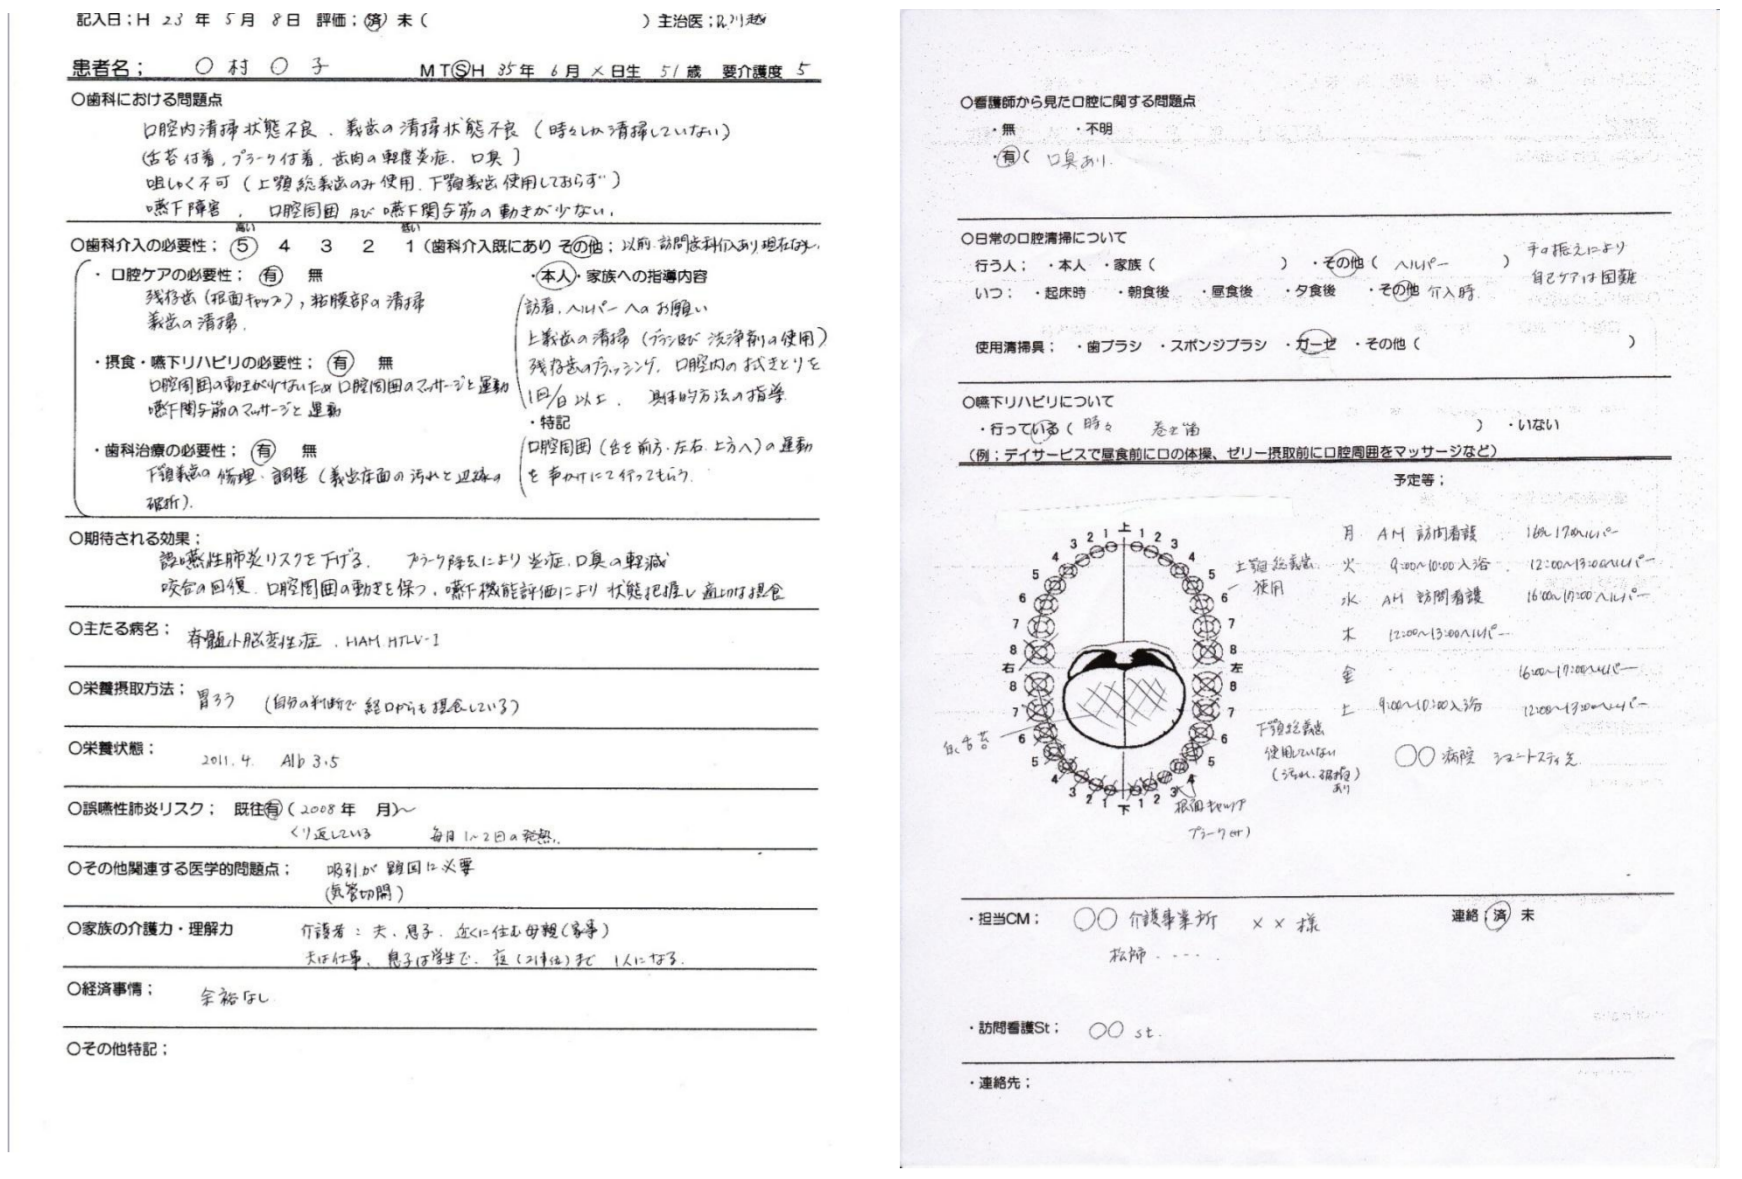 記入日；H 23 年 5 月 8 日 評価；済 未（ ）主治医；Dr川越
患者名； ○ 村 ○ 子 M T S H 35年 6月 × 日生 51歳 要介護度 5
○歯科における問題点
口腔内清掃状態不良、義歯の清掃状態不良（時々しか清掃していない）
（舌苔付着、プラーク付着、歯肉の軽度炎症、口臭）
咀しゃく不可（上顎総義歯のみ使用、下顎義歯使用しておらず）
嚥下障害、口腔周囲及び嚥下関与筋の動きが少ない。
高い 低い
○歯科介入の必要性； 5 4 3 2 1（歯科介入既にあり その他；以前訪問歯科介入あり、現在なし。
・口腔ケアの必要性； 有 無
残存歯（根面キャップ）、粘膜部の清掃
義歯の清掃。
・摂食・嚥下リハビリの必要性； 有 無
口腔周囲の動きが少ないため口腔周囲のマッサージと運動
嚥下関与筋のマッサージと運動
・歯科治療の必要性； 有 無
下顎義歯の修理・調整（義歯床面の汚れと辺縁の
破折）。
・本人・家族への指導内容
訪看、ヘルパーへのお願い
上義歯の清掃（ブラシ及び洗浄剤の使用）
残存歯のブラッシング、口腔内の拭きとりを
1回/日以上、具体的方法の指導
・特記
口腔周囲（舌を前方・左右・上方へ）の運動
を声かけにて行ってもらう。
○期待される効果；
誤嚥性肺炎リスクを下げる。プラーク除去により炎症、口臭の軽減
咬合の回復、口腔周囲の動きを保つ、嚥下機能評価により状態把握し適切な摂食
○主たる病名； 脊髄小脳変性症、HAM HTLV-1
○栄養摂取方法； 胃ろう （自分の判断で経口からも摂食している）
○栄養状態； 2011.4. Alb 3.5
○誤嚥性肺炎リスク； 既往有（2008年 月）〜
くり返している 毎月1〜2日の発熱。
○その他関連する医学的問題点； 吸引が頻回に必要
（気管切開）
○家族の介護力・理解力 介護者：夫、息子、近くに住む母親（家事）
夫は仕事、息子は学生で、夜（21時位）まで1人になる。
○経済事情； 余裕なし
○その他特記；
○看護師から見た口腔に関する問題点
・無 ・不明
・有（ 口臭あり。
○日常の口腔清掃について
行う人； ・本人 ・家族（ ） ・その他（ ヘルパー ）
いつ； ・起床時 ・朝食後 ・昼食後 ・夕食後 ・その他 介入時
手の振えにより
自己ケアは困難
使用清掃具； ・歯ブラシ ・スポンジブラシ ・ガーゼ ・その他（ ）
○嚥下リハビリについて
・行っている（ 時々 巻き笛 ） ・いない
（例；デイサービスで昼食前に口の体操、ゼリー摂取前に口腔周囲をマッサージなど）
予定等；
月 AM 訪問看護 16h〜17hヘルパー
火 9:00〜10:00 入浴 12:00〜13:00ヘルパー
水 AM 訪問看護 16:00〜17:00ヘルパー
木 12:00〜13:00ヘルパー
金 16:00〜17:00ヘルパー
土 9:00〜10:00入浴 12:00〜13:00ヘルパー
○○病院 ショートステイ先
上
3 2 1 1 2 3
4 4
5 5
6 6
7 7
8 8
右 左
8 8
7 7
6 6
5 5
4 4
3 2 1 1 2 3
下
上顎総義歯
使用
下顎総義歯
使用していない
（汚れ、破折
あり）
白、舌苔
根面キャップ
プラーク(+)
・担当CM； ○○ 介護事業所 ×× 様 連絡；済 未
・訪問看護St； ○○ st.
・連絡先；